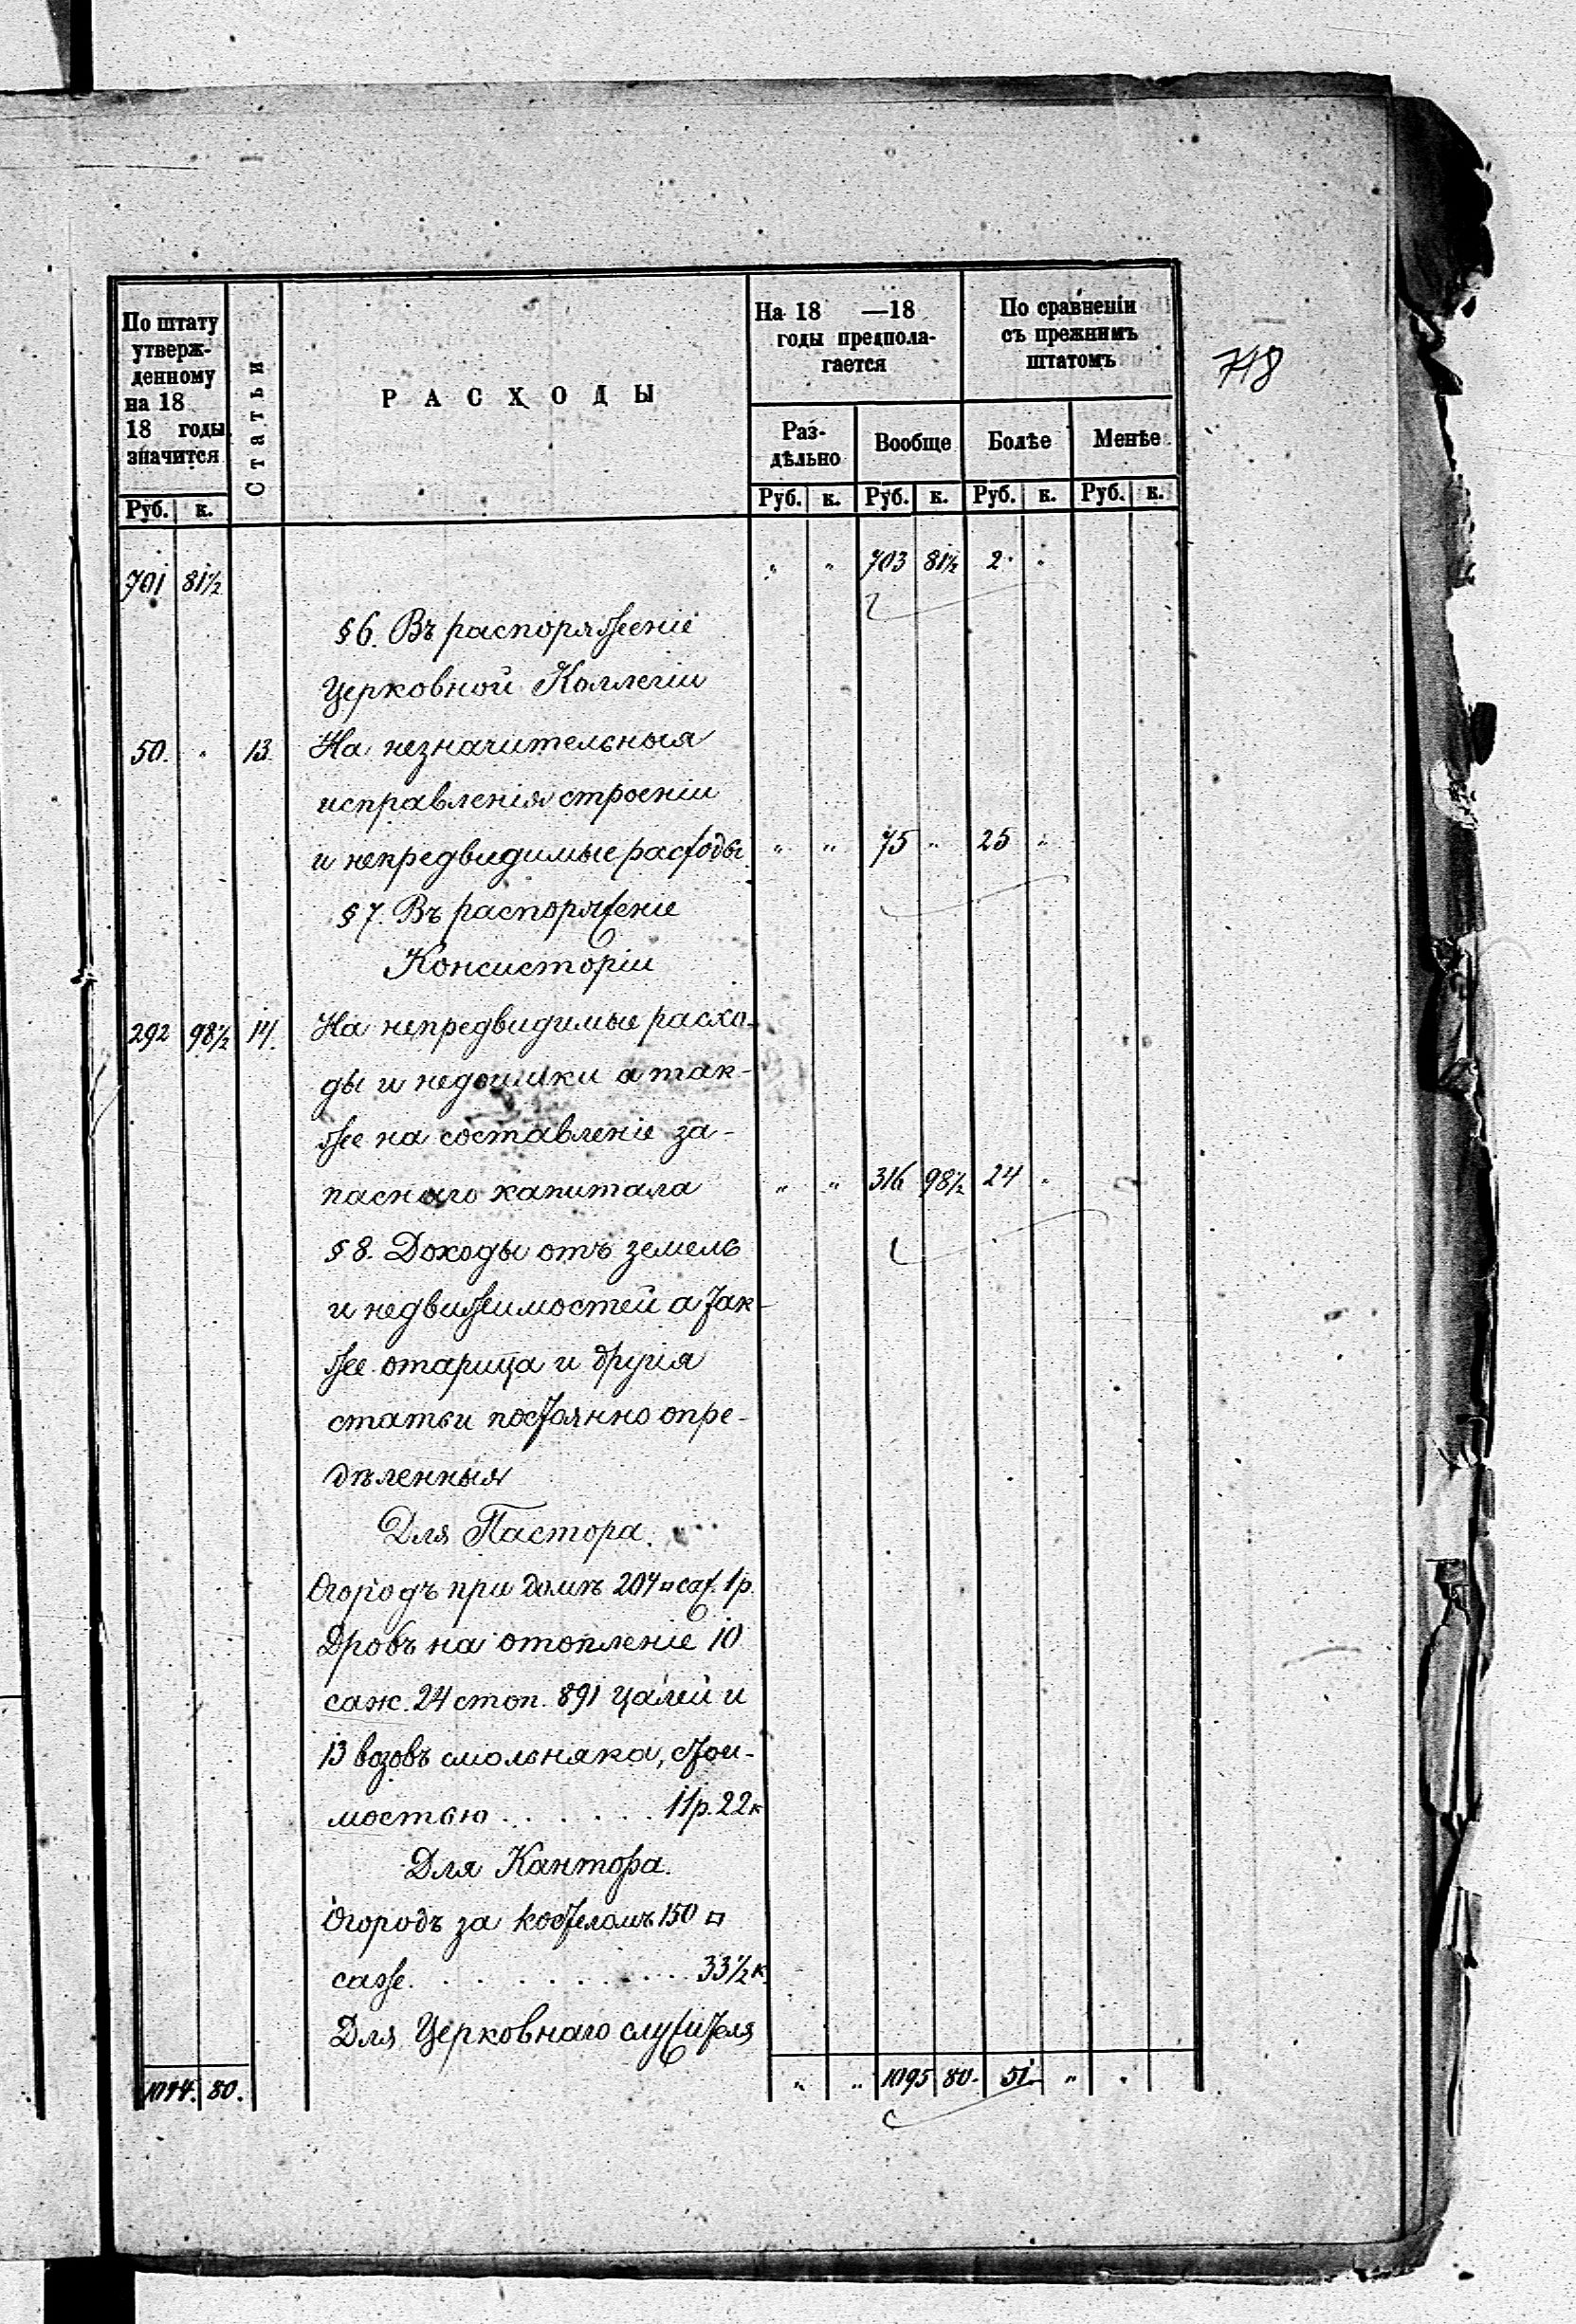 718
По штату утверж-денному на 18 18 годы значится
Статьи
РАСХОДЫ
На 18 —18 годы предпола-гается
По сравненіи съ прежнимъ штатомъ
Раз-дѣльно
Вообще
Болѣе
Менѣе
Руб. к. Руб. к. Руб. к. Руб. к. Руб. к.
701 81½ " " 703 81½ 2 "
§ 6. Въ распоряженіе
Церковной Коллегіи
50. " 13. На незначительныя
исправленія строеніи
и непредвидимые расходы " " 75 " 25 "
§ 7. Въ распоряженіе
Консисторіи
292 98½ 14. На непредвидимые расхо-
ды и недоимки а так-
же на составленіе за-
паснаго капитала " " 316 98½ 24 "
§ 8. Доходы отъ земель
и недвижимостей а так-
же отарица и другія
статьи постоянно опре-
дѣленныя
Для Пастора.
Огородъ при домѣ 204 □ саж. 1 р.
Дровъ на отопленіе 10
саж. 24 стоп. 891 цалей и
13 возовъ смольняка, стои-
мостью . . . . . . 11 р. 22 к
Для Кантора.
Огородъ за костеломъ 150 □
саж. . . . . . . . . . . 33½ к.
Для Церковнаго служителя
1044. 80. " " 1095 80. 51. "